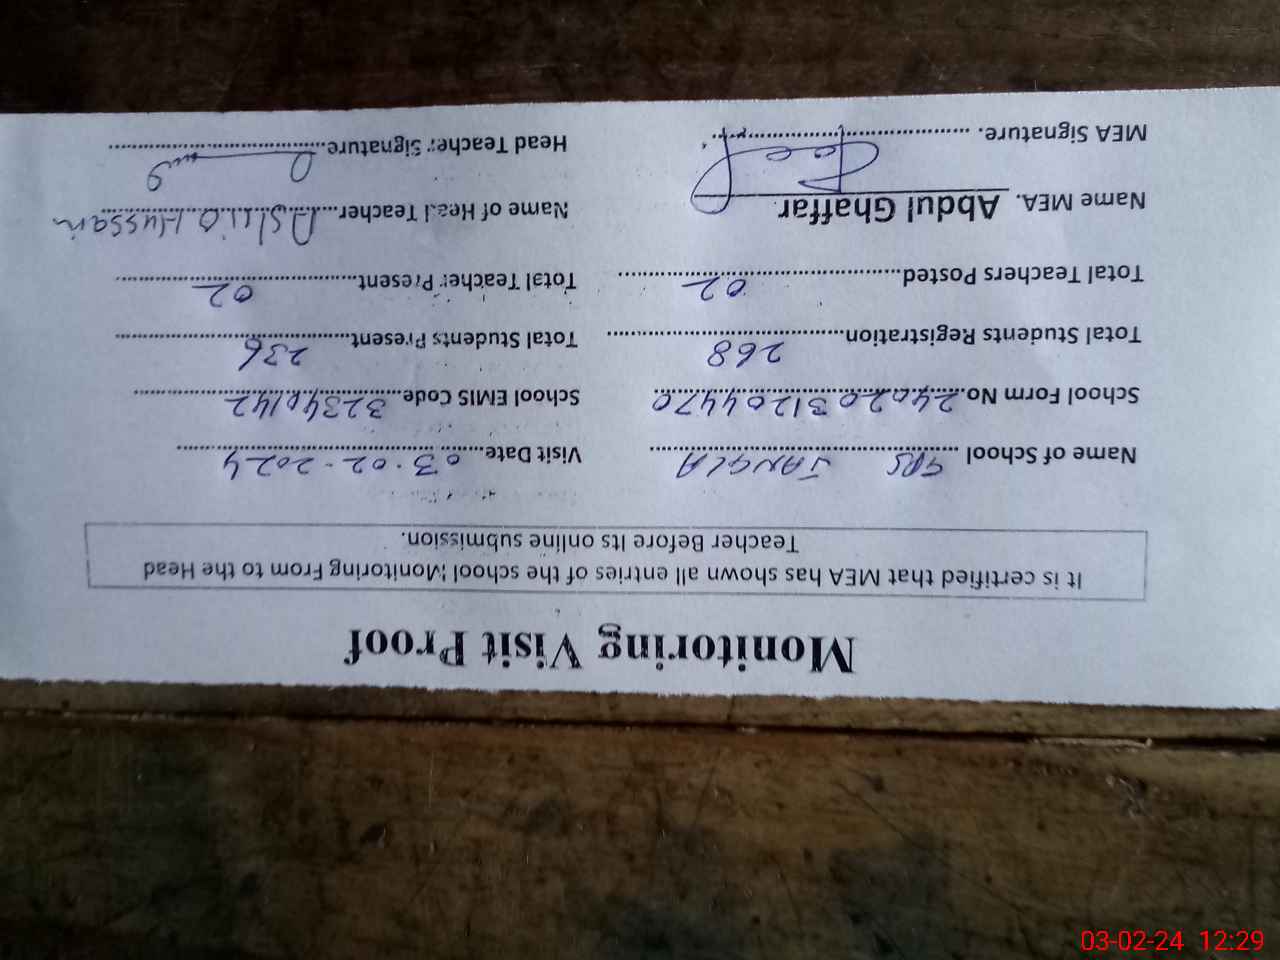 Monitoring Visit Proof
It is certified that MEA has shown all entries of the school Monitoring From to the Head
Teacher Before Its online submission.
Name of School GPS JANGLA Visit Date 03-02-2024
School Form No. 2402031204470 School EMIS Code 32340142
Total Students Registration 268 Total Students Present 236
Total Teachers Posted 02 Total Teacher Present 02
Name MEA. Abdul Ghaffar Name of Head Teacher Hussain
MEA Signature. Head Teacher Signature
03-02-24 12:29